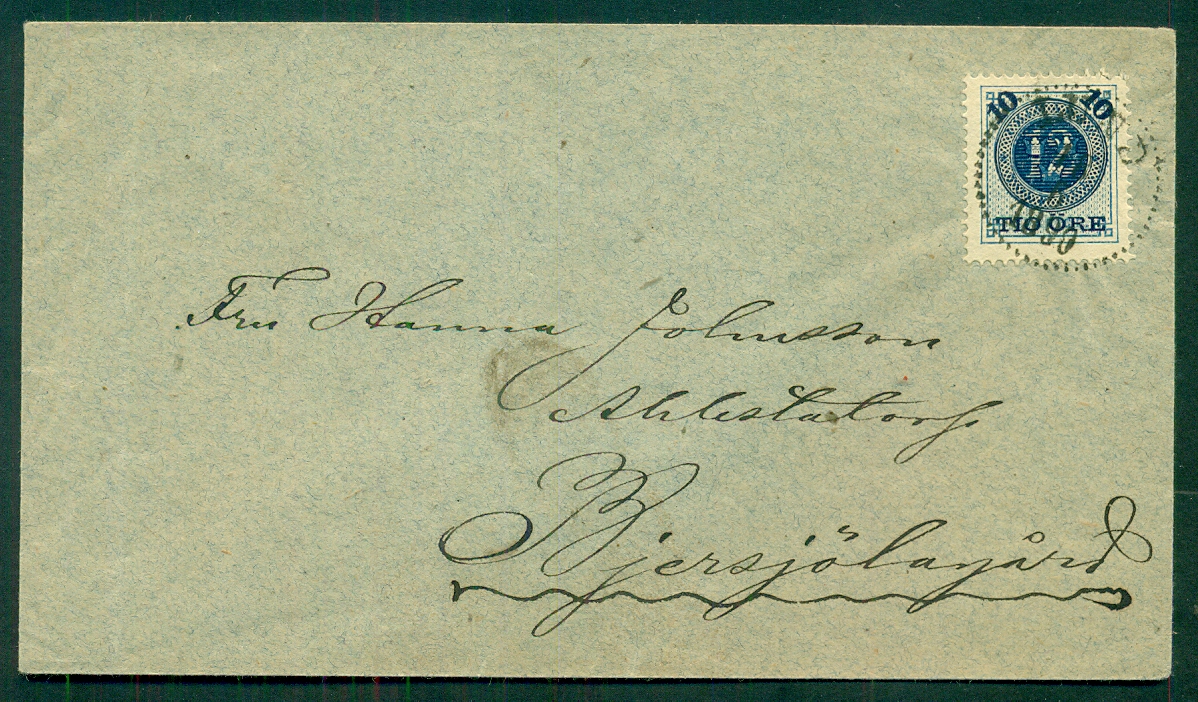 10 10
12
TIO ÖRE
1890
Fru Hanna Johnsson
Ahlestatorp
Bjersjölagård